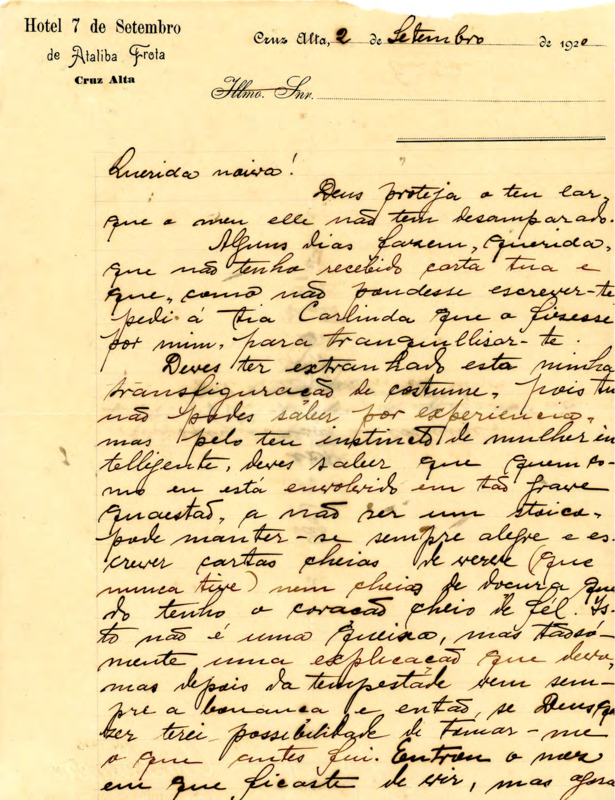 Hotel 7 de Setembro
de Ataliba Frota
Cruz Alta
Cruz Alta, 2 de Setembro de 1920
Illmo. Snr.
Querida noiva!
Deus proteja o teu lar,
que o meu elle não tem desamparado.
Alguns dias fazem, querida,
que não tenho recebido carta tua e
que, como não poudesse escrever-te
pedi á tia Carlinda que o fizesse
por mim, para tranquillisar-te.
Deves ter extranhado esta minha
transfiguração de costume, pois tu
não podes saber por experiencia,
mas pelo teu instincto de mulher in
telligente, deves saber que quem co-
mo eu está envolvido em tão grave
questão, a não ser um stoico,
pode manter-se sempre alegre e es-
crever cartas cheias de verve (que
nunca tive) nem cheias de doçura quan
do tenho o coração cheio de fel. Is-
to não é uma queixa, mas tãosó-
mente uma explicação que devia,
mas depois da tempestade vem sem-
pre a bonança e então, se Deus qui
zer terei possibilidade de tornar-me
o que antes fui. Entrou o mez
em que ficaste de vir, mas agora